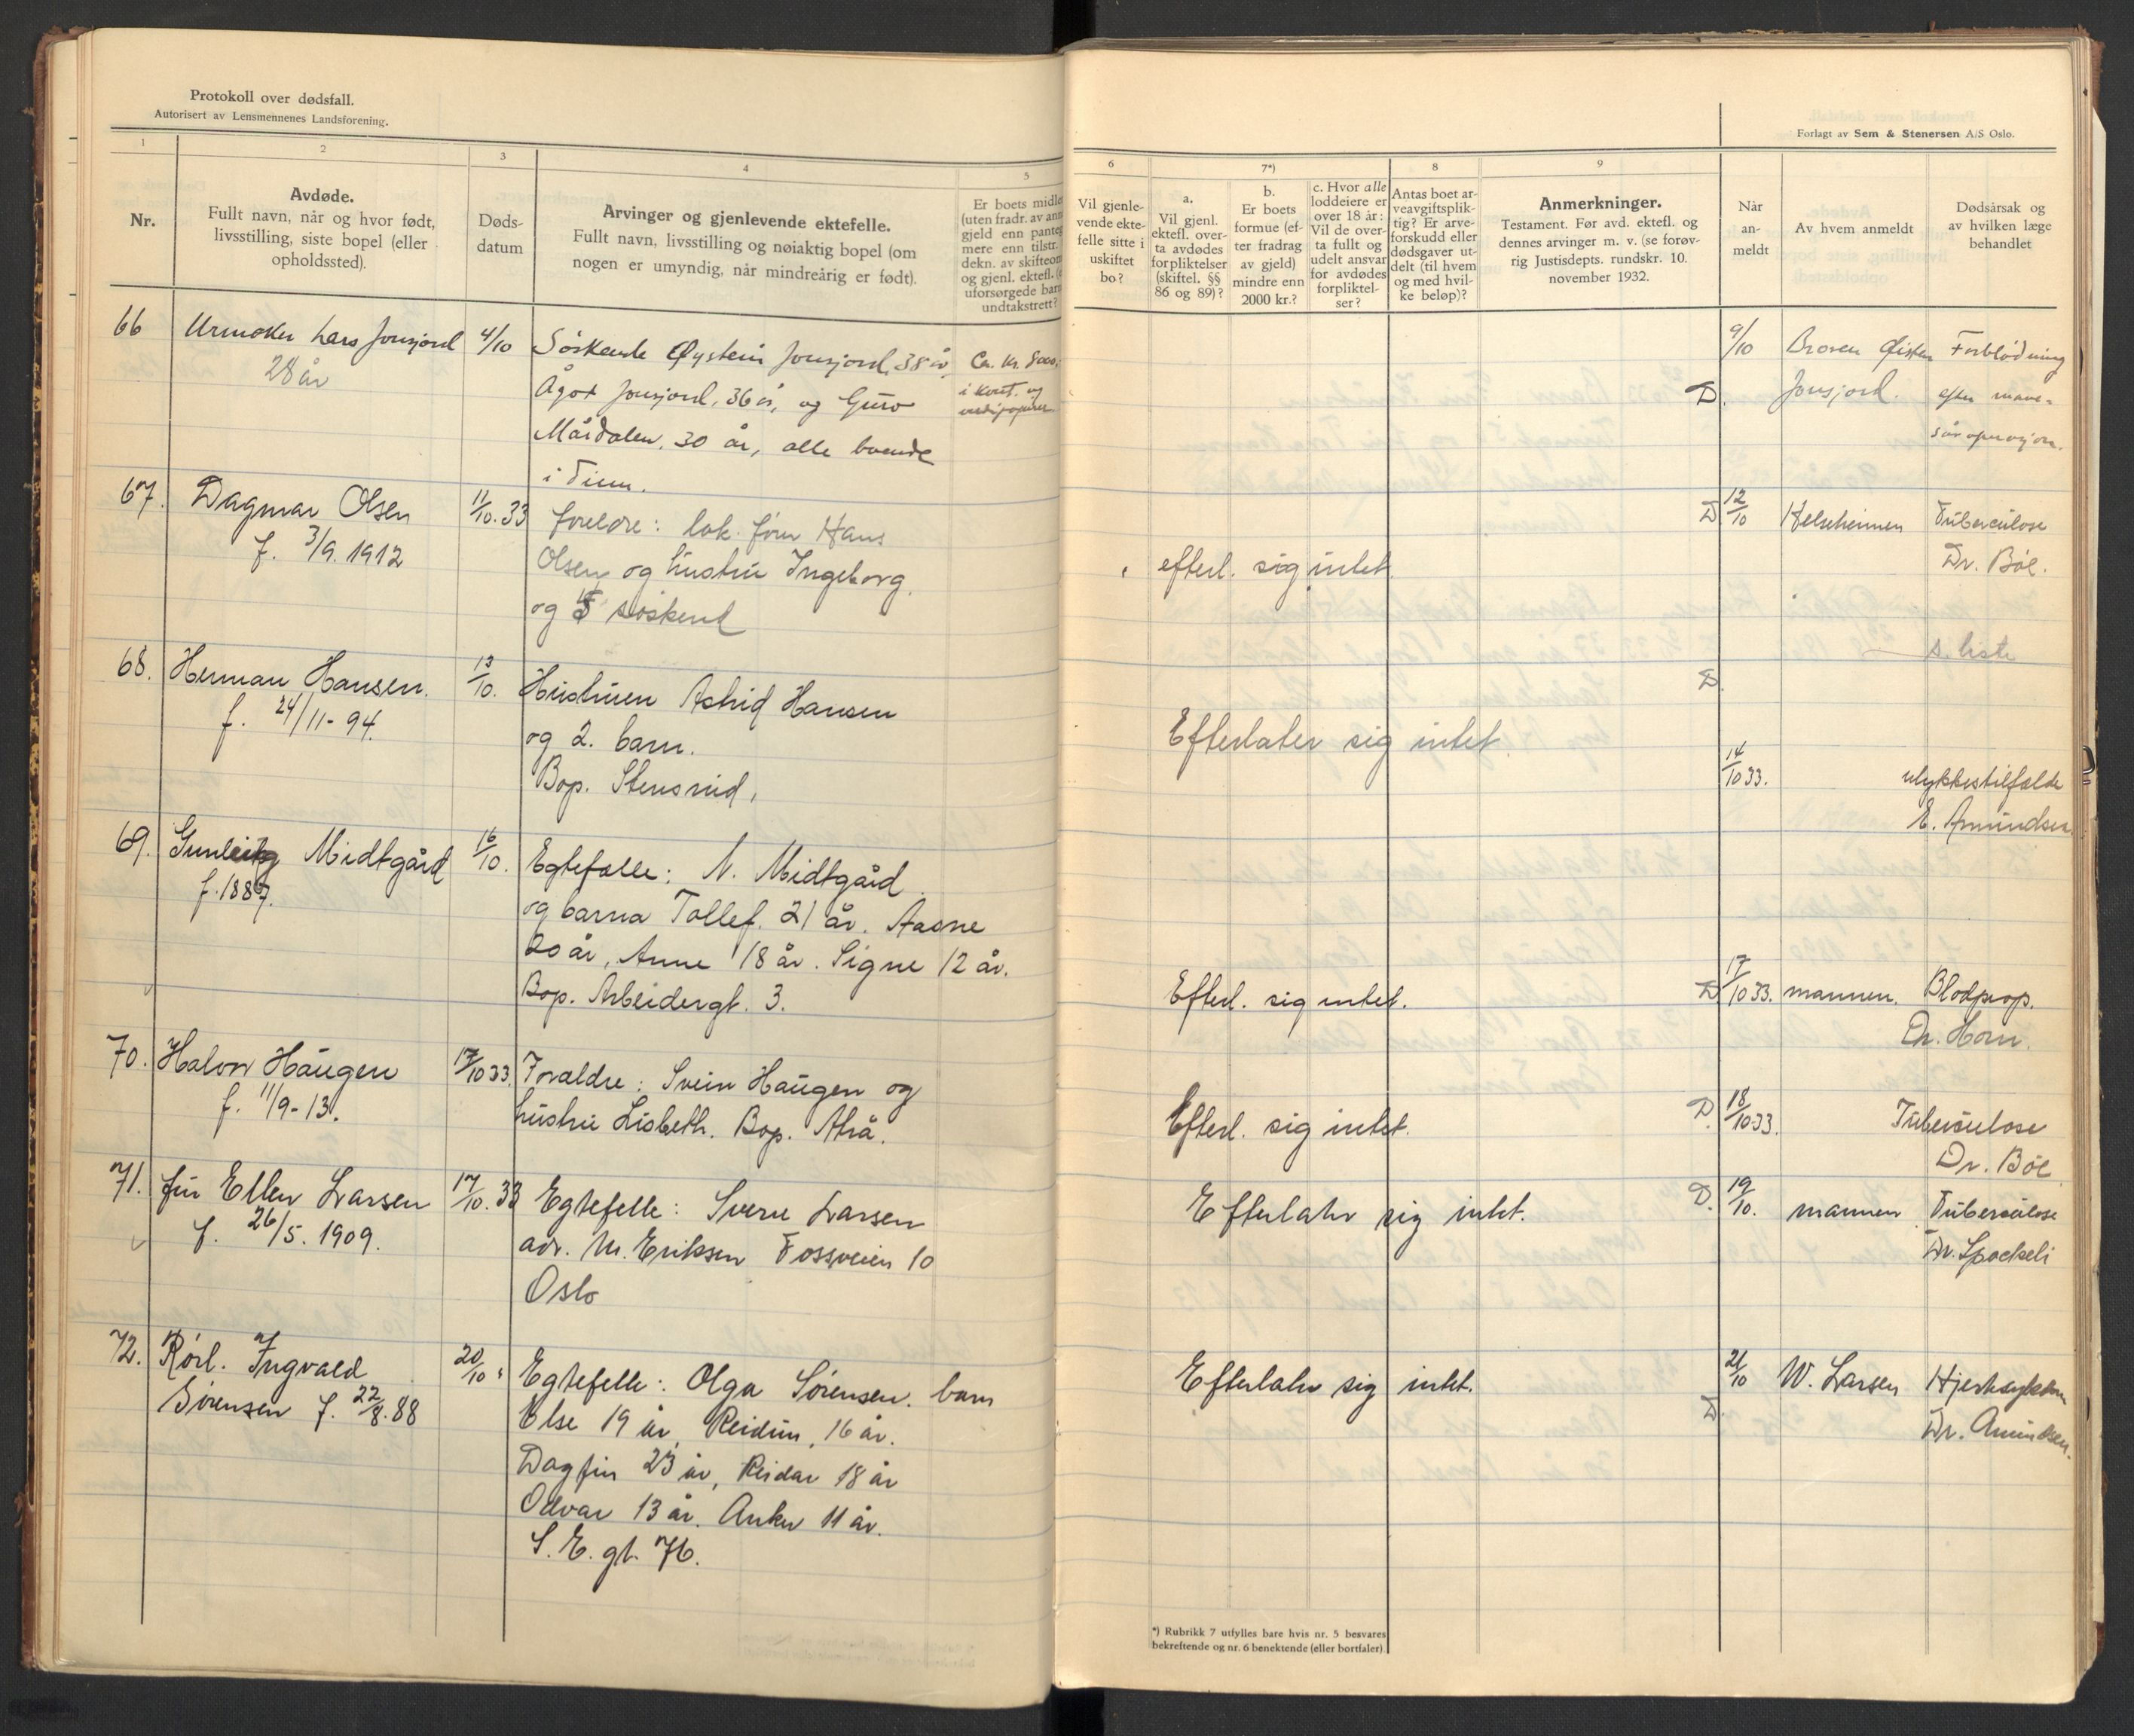 Protokoll over dødsfall.
Autorisert av Lensmennenes Landsforening.
Forlagt av Sem & Stenersen A/S Oslo.
1
2
3
4
5
Nr.
Avdøde.
Fullt navn, når og hvor født,
livsstilling, siste bopel (eller
opholdssted).
Døds-
datum
Arvinger og gjenlevende ektefelle.
Fullt navn, livsstilling og nøiaktig bopel (om
nogen er umyndig, når mindreårig er født).
Er boets midle
(uten fradr. av ann
gjeld enn panteg
mere enn tilstr.
dekn. av skifteom
og gjenl. ektefl. (e
uforsørgede barn
undtakstrett?
6
7*)
8
9
Vil gjenle-
vende ekte-
felle sitte i
uskiftet
bo?
a.
Vil gjenl.
ektefl. over-
ta avdødes
forpliktelser
(skiftel. §§
86 og 89)?
b.
Er boets
formue (ef-
ter fradrag
av gjeld)
mindre enn
2000 kr.?
c. Hvor alle
loddeiere er
over 18 år:
Vil de over-
ta fullt og
udelt ansvar
for avdødes
forpliktel-
ser?
Antas boet ar-
veavgiftsplik-
tig? Er arve-
forskudd eller
dødsgaver ut-
delt (til hvem
og med hvil-
ke beløp)?
Anmerkninger.
Testament. Før avd. ektefl. og
dennes arvinger m. v. (se forøv-
rig Justisdepts. rundskr. 10.
november 1932.
Når
an-
meldt
Av hvem anmeldt
Dødsårsak og
av hvilken læge
behandlet
66
Urmaker Lars Jonsjord
28 år
4/10
Søskende Øystein Jonsjord, 38 år,
Ågot Jonsjord, 36 år, og Guro
Mårdalen, 30 år, alle boende
i Tinn.
Ca. kr.
i kont. og
verdipapirer
D.
9/10
Broren Øisten
Jonsjord.
Forblødning
efter mave-
sår operasjon.
67.
Dagmar Olsen
f. 3/9. 1912
11/10. 33
foreldre: lok. fører Hans
Olsen og hustru Ingeborg.
og 5 søskend
efterl. sig intet.
D.
12/10
Helseheimen
Tuberculose
Dr. Böe.
s. liste
68.
Herman Hansen.
f. 24/11-94.
13/10.
Hustruen Astrid Hansen
og 2. barn.
Bop. Stensrud,
Efterlater sig intet.
D.
14/10 33.
ulykkestilfælde
E. Amundsen
69.
Midtgård
f. 1887.
16/10.
Egtefælle: N. Midtgård.
og barna Tollef. 21 år. Aasne
20 år, Anne 18 år. Signe 12 år.
Bop. Arbeidergt. 3.
Efterl. sig intet.
D
17/10 33.
mannen.
Blodprop.
Dr. Horn.
70.
Halvor Haugen
f. 11/9-13.
17/10 33.
Forældre: Svein Haugen og
hustru Lisbeth. Bop. Atrå.
Efterl. sig intet.
D.
18/10 33.
Tuberculose
Dr. Böe
71.
fru Ellen Larsen
f. 26/5. 1909.
17/10. 33
Egtefelle: Sverre Larsen
adr. M. Eriksen Fossveien 10
Oslo
Efterlater sig intet.
D.
19/10.
mannen
Tuberculose
Dr. Spockeli
72.
Rørl. Ingvald
Sørensen f. 22/8. 88
20/10.
Egtefelle: Olga Sørensen. barn
Else 19 år, Reidun, 16 år.
Dagfin 23 år, Reidar 18 år
Odvar 13 år. Anker 11 år.
S. E. gt. 76.
Efterlater sig intet.
D.
21/10
W. Larsen
Hjertesykdom
Dr. Amundsen.
*) Rubrikk 7 utfylles bare hvis nr. 5 besvares
bekreftende og nr. 6 benektende (eller bortfaler).